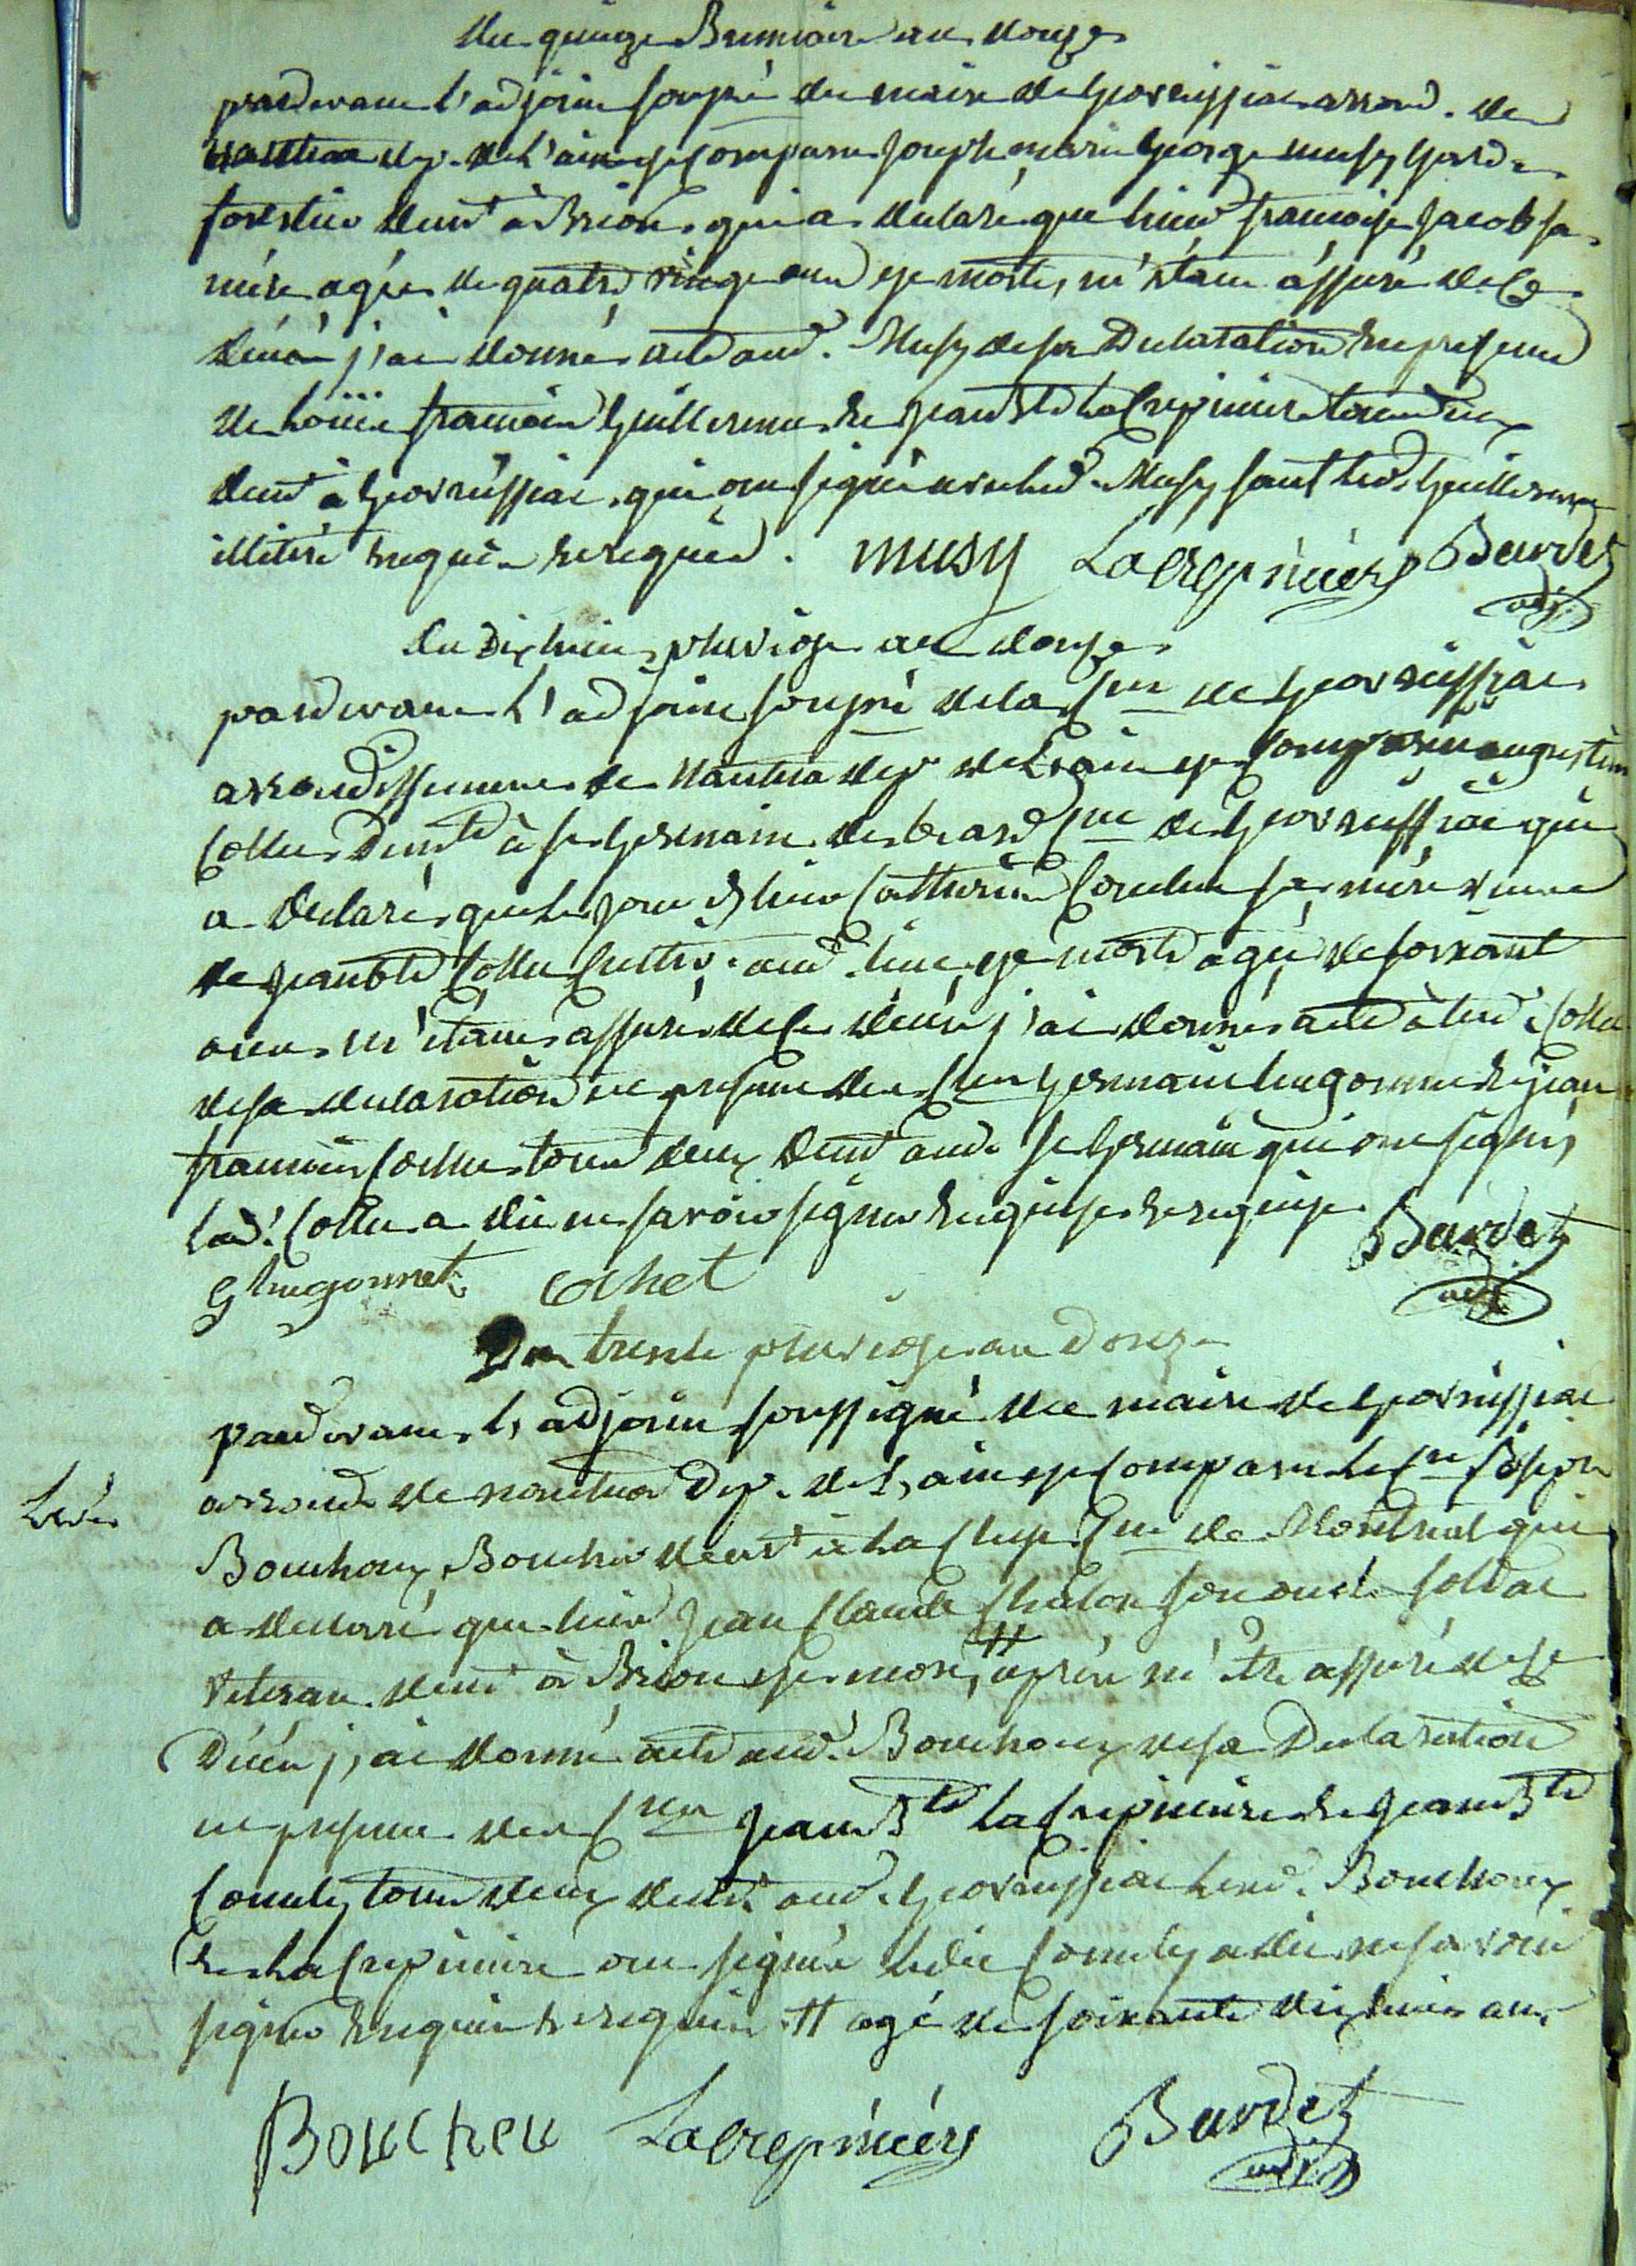 du quinze Brumaire an douze
pardevant l'adjoint sousné du maire de Geovreissiac arrond. de
nantua dep. de l'ain est comparu Joseph marie George musy garde
forestier demt à Brion, qui a declaré que hier francoise Jacob sa
mére agée de quatre vingt ans est morte, m'étant assuré de ce
décés j'ai donné acte aud. Musy de sa Declaration en presence
de francois Guillermet & Jean Bte Lacrepiniere tous deux
demt à Geovreissiac, qui ont signé avec led. Musy sauf led. Guillermet
illiteré enquis & requis. musy Lacrepiniere Burdet
adj.
du dixhuit pluviose an douze
pardevant l'adjoint sousné de la Cne de Geovreissiac
arrondissement de Nantua dep. de l'ain est comparu augustine
Collet demte à St Germain de beard Cne de Geovreissiac qui
a declaré, que le jour d'hier Catherine sa mére veuve
de Jean Bte Collet cultiv. aud. lieu, est morte agée de soixante
ans, m'étant assuré de ce décés j'ai donné acte à lad. Collet
de sa declaration en presence des Cen Germain hugonnet & Jean
francois Cochet tous deux demt aud. St Germain qui ont signé,
lad. Collet a dit ne savoir signer enquise & requise. Burdet
G hugonnet Cochet adj.
Du trente pluviose an douze
pardevant l'adjoint soussigné du maire de Geovreissiac
arrond. de nantua Dep. de l'ain est comparu le Cen Joseph
Bouchoux, Boucher demt à la Cluse Cne de Montreal qui
a declaré que hier Jean Claude Chalon son oncle soldat
veteran demt à Brion est mort, # aprés m'étre assuré de ce
Décés j'ai donné acte aud. Bouchoux de sa Declaration
en presence des Cens Jean Bte Lacrepiniere & Jean Bte
Comly tous deux demt aud. Geovreissiac led. Bouchoux
& Lacrepiniere ont signé ledit Comly a dit ne savoir
signer enquis & requis # agé de soixante dix huit ans
Boucheu Lacrepiniere Burdet
adj.